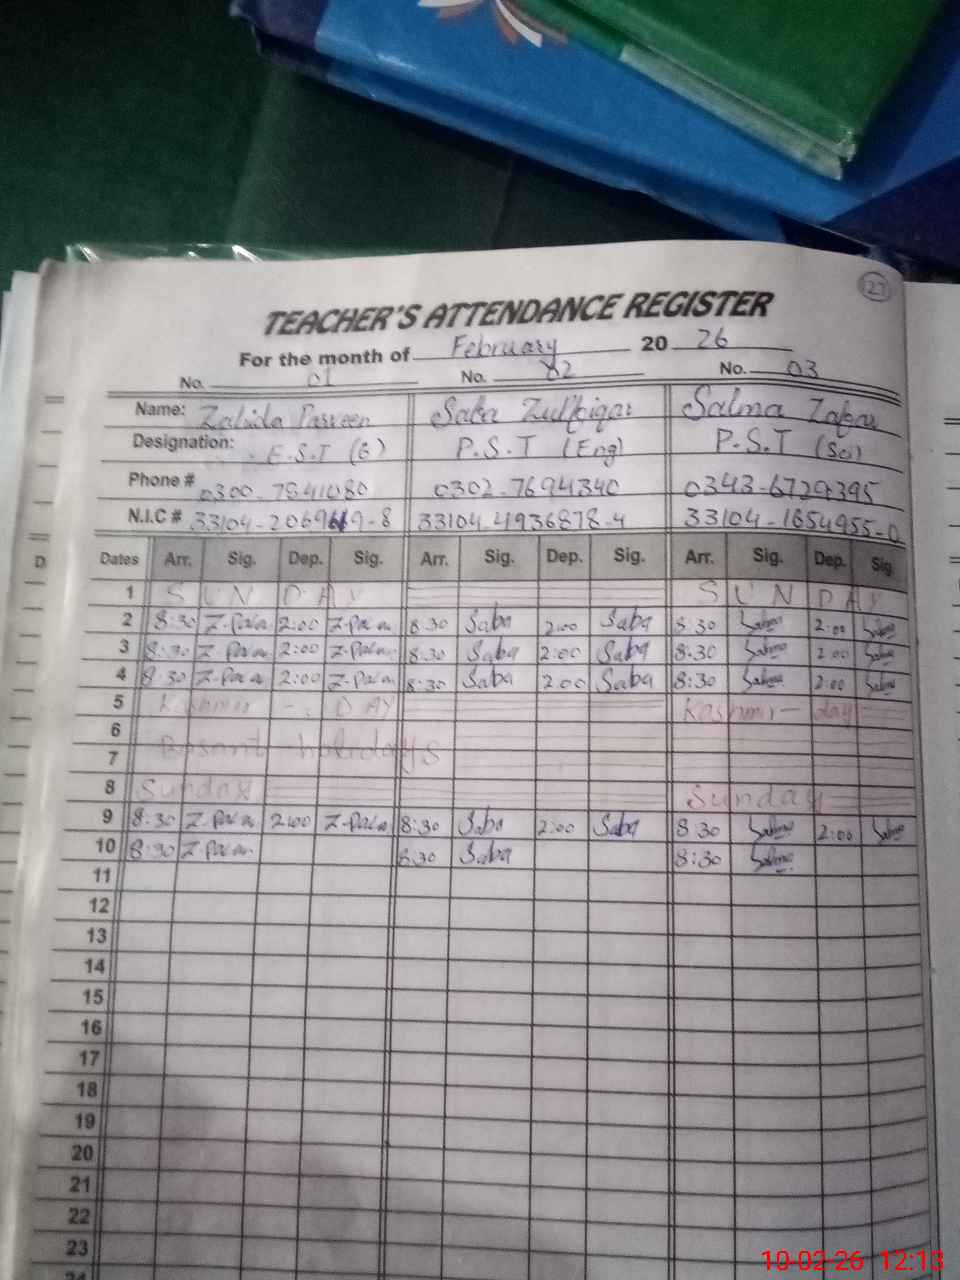 27
TEACHER'S ATTENDANCE REGISTER
For the month of February 20 26
No. 01 No. 02 No. 03
Name: Zahida Parveen Saba Zulfiqar Salma Zafar
Designation: E.S.T (G) P.S.T (Eng) P.S.T (Sci)
Phone # 0300-7841080 0302-7694340 0343-6729395
N.I.C # 33104-2069619-8 33104-4936878-4 33104-1654955-0
Dates Arr. Sig. Dep. Sig. Arr. Sig. Dep. Sig. Arr. Sig. Dep. Sig.
1 SUNDAY SUNDAY
2 8:30 2:00 8:30 Saba 2:00 Saba 8:30 Salma 2:00 Salma
3 8:30 2:00 8:30 Saba 2:00 Saba 8:30 Salma 2:00 Salma
4 8:30 2:00 8:30 Saba 2:00 Saba 8:30 Salma 2:00 Salma
5 Kashmir - DAY Kashmir - day
6
Basant holidays
7
8 Sunday Sunday
9 8:30 2:00 8:30 Saba 2:00 Saba 8:30 Salma 2:00 Salma
10 8:30 8:30 Saba 8:30 Salma
11
12
13
14
15
16
17
18
19
20
21
22
23
24
D
10-02-26 12:13